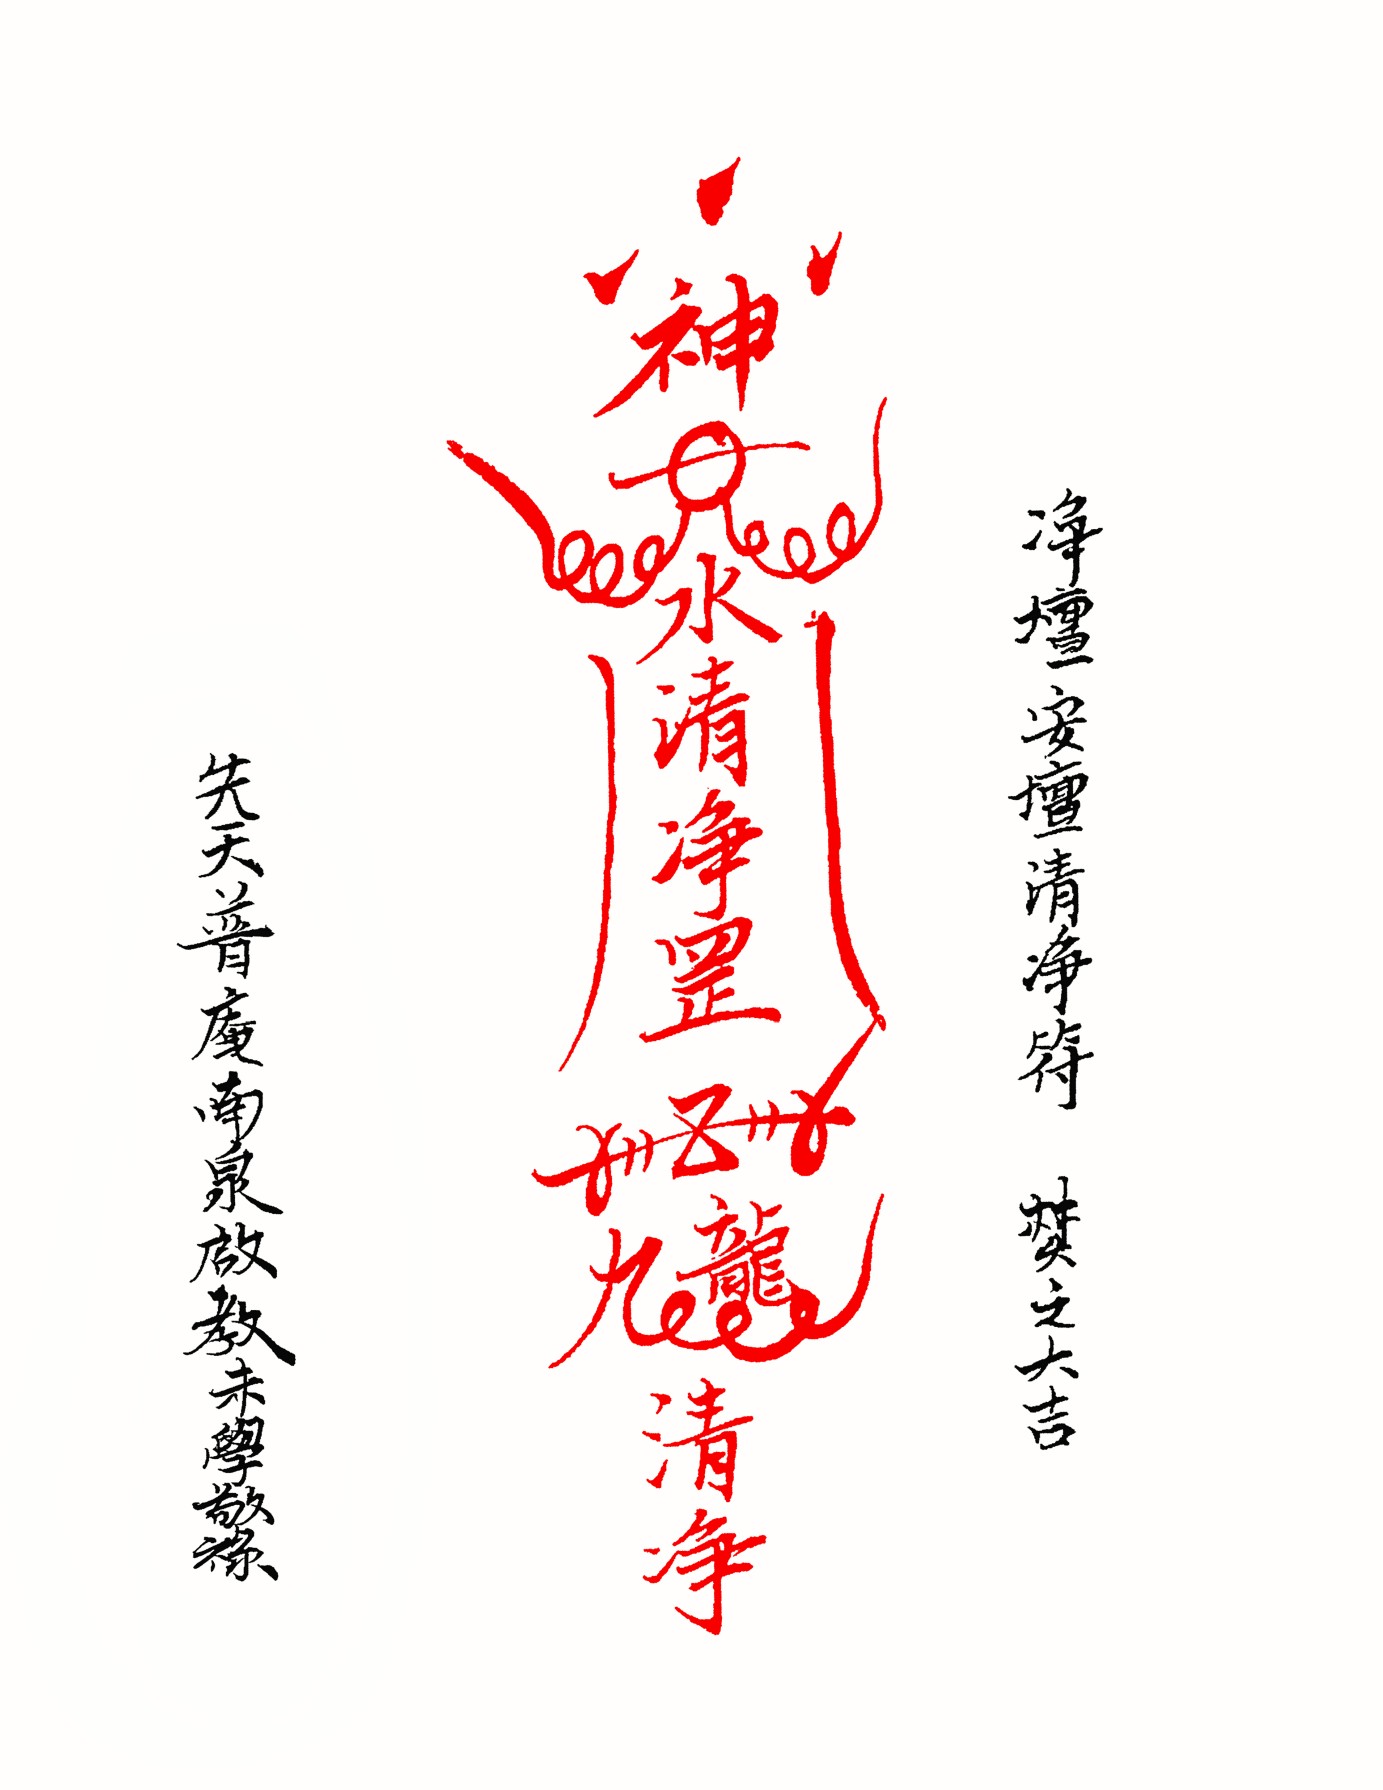 净壇安壇清净符 焚之大吉
神
水清净罡
九龍
清净
先天普庵南泉啟教末學敬祿